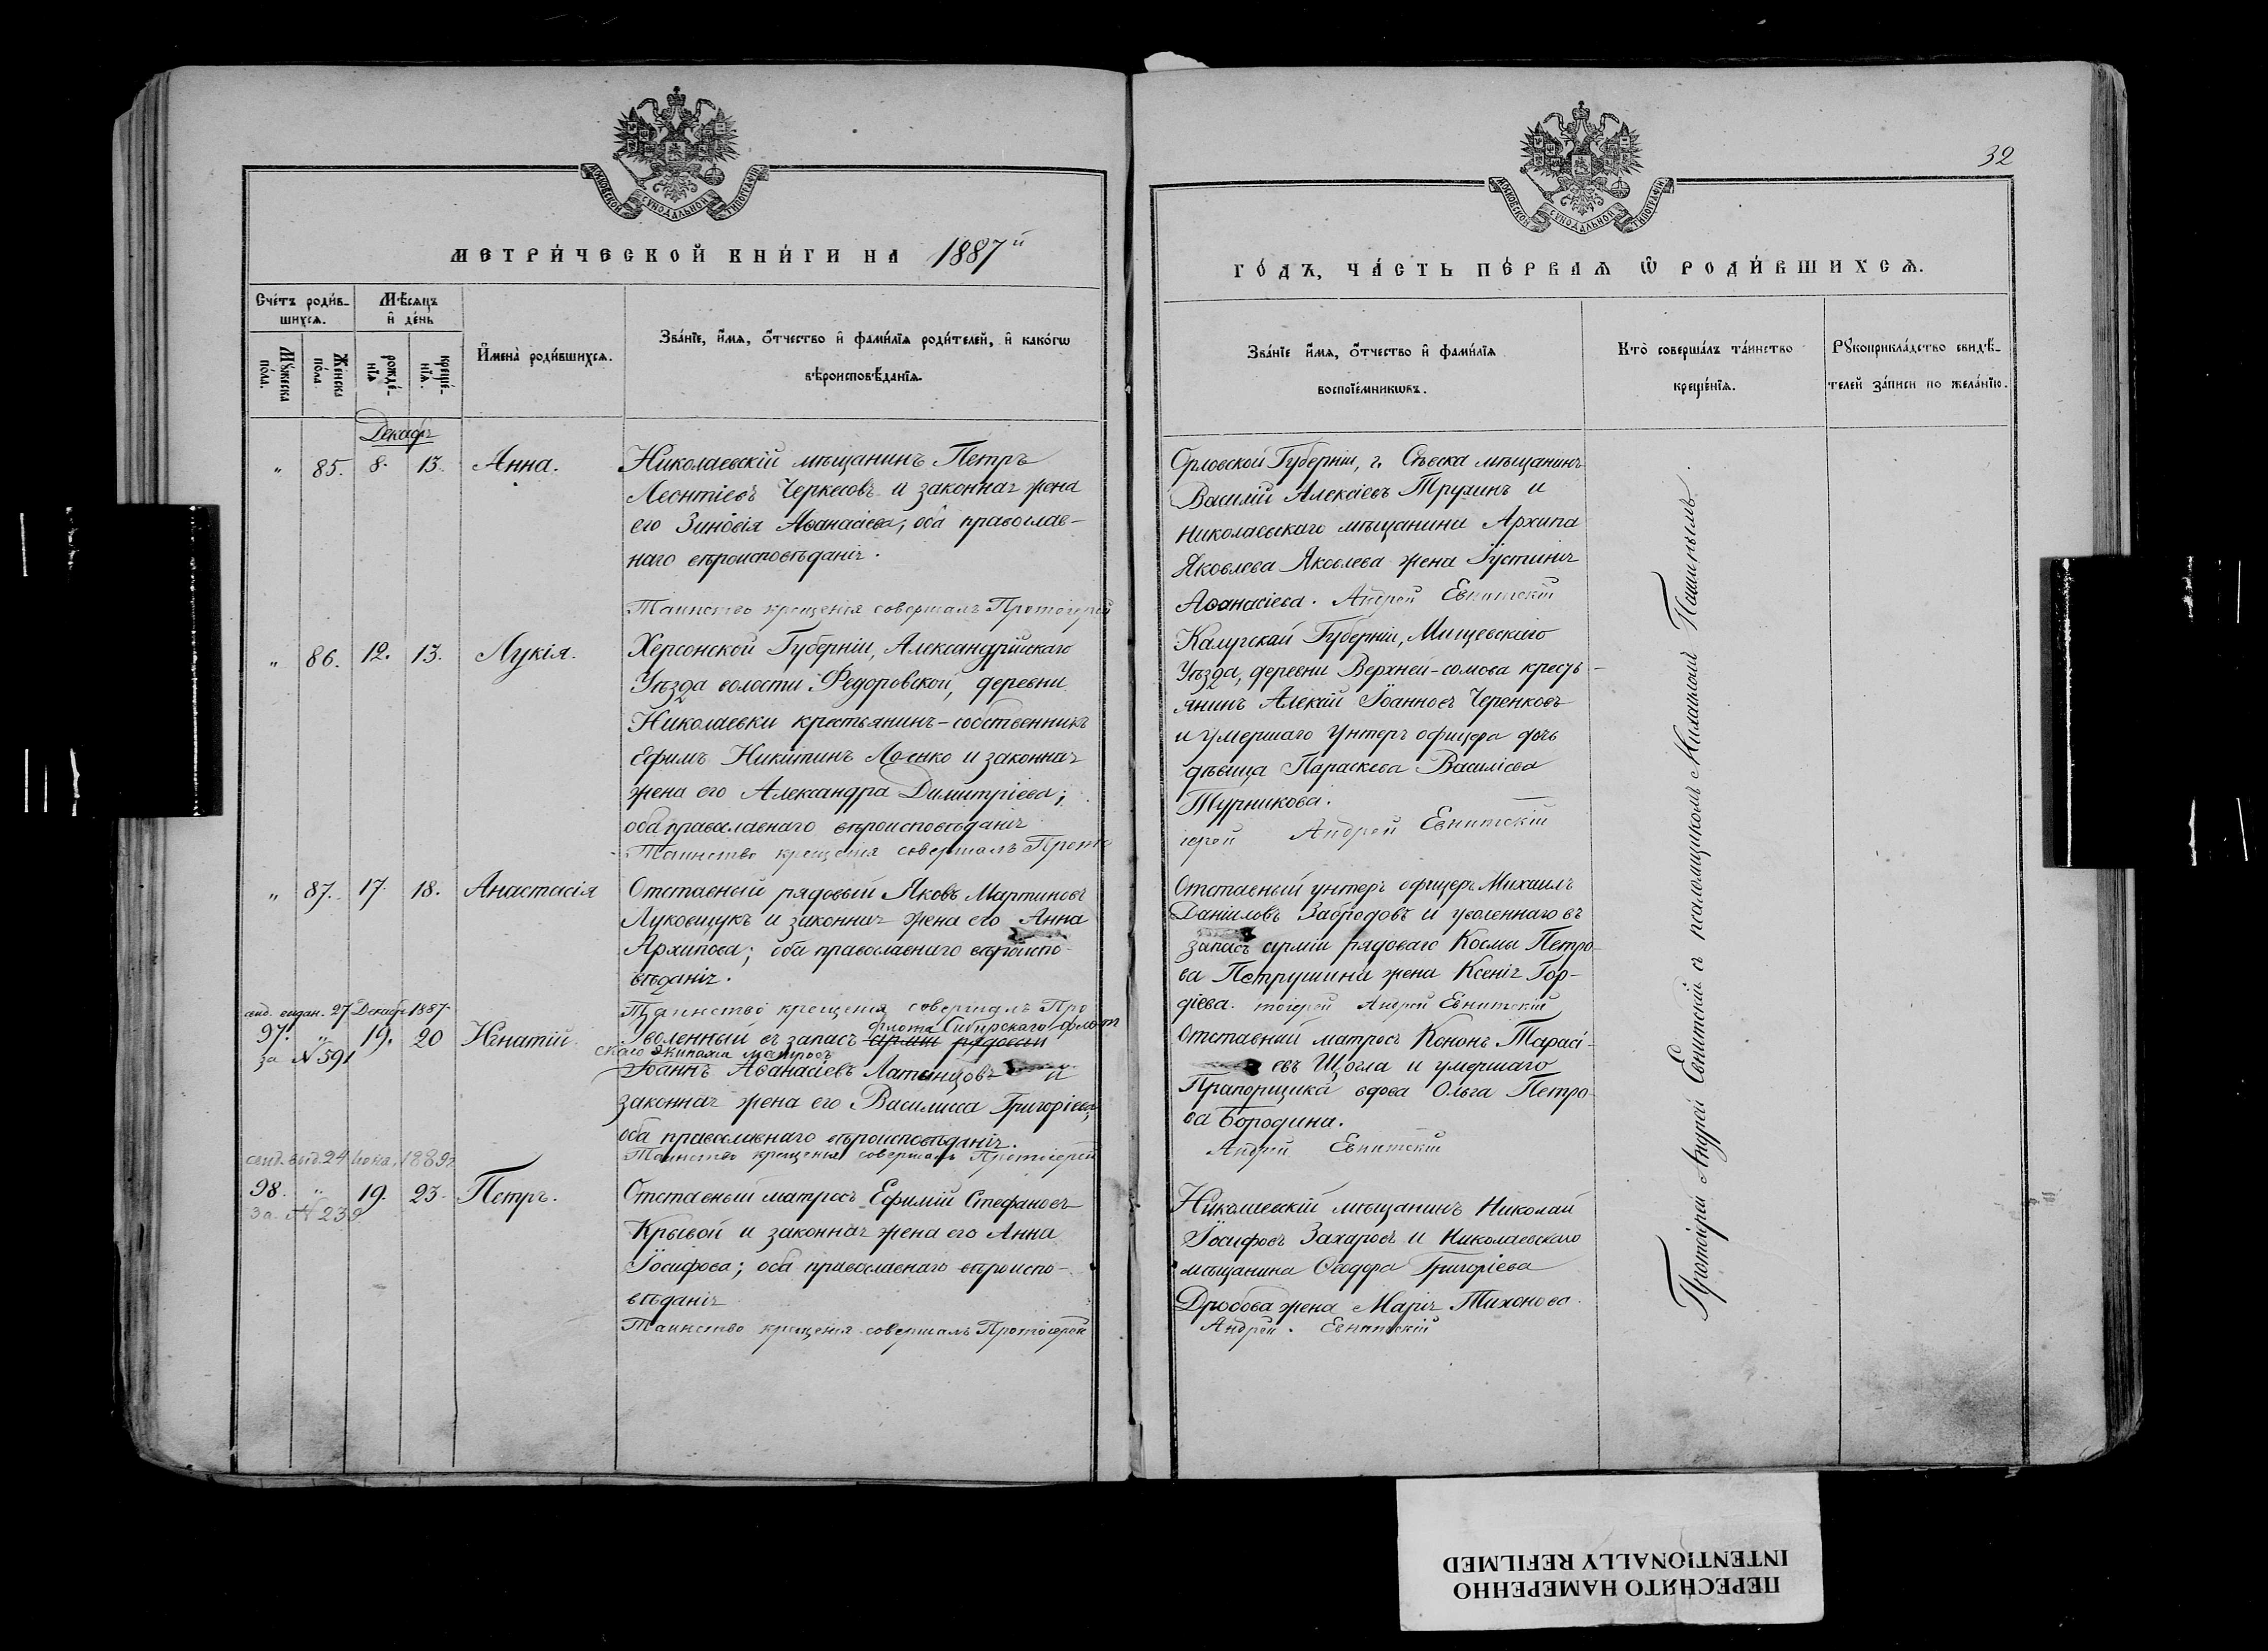 МОСКОВСКОЙ СѴНОДАЛЬНОЙ ТИПОГРАФІИ
МЕТРИ́ЧЕСКОЙ КНИ́ГИ НА 1887й
Сче́тъ роди́в-
шихся.
Мѣ́сяцъ
и҆ де́нь
Мꙋ́жеска
по́ла.
Же́нска
по́ла
рожде́-
нїѧ
креще́-
нїѧ.
И҆мена̀ роди́вшихсѧ.
Зва́нїе, и҆́мѧ, ѻ҆́тчество и҆ фами́лїѧ роди́телей, и҆ како́гѡ
вѣроисповѣ́данїѧ.
Декабрь
„ 85. 8. 13. Анна.
Николаевскій мѣщанинъ Петръ
Леонтіевъ Черкесовъ и законная жена
его Зиновія Аѳанасіева; оба православ-
наго вѣроисповѣданія.
Таинство крещенія совершалъ Протоіерей
„ 86. 12. 13. Лукія.
Херсонской Губерніи, Александрійскаго
Уѣзда волости Федоровской, деревни
Николаевки крестьянинъ-собственникъ
Ефимъ Никитинъ и законная
жена его Александра Димитріева;
оба православнаго вѣроисповѣданія
Таинство крещенія совершалъ Прото
„ 87. 17. 18. Анастасія
Отставный рядовый Яковъ Мартиновъ
Луковщукъ и законная жена его Анна
Архипова; оба православнаго вѣроиспо-
вѣданія.
Таинство крещенія совершалъ Про
свид. выдан. 27 Декабр 1887.
97. „ 19. 20 Игнатій
за № 591
флота Сибирскаго флот
Уволенный въ запасъ арміи рядовый
скаго Экипажа матросъ
Іоаннъ Аѳанасіевъ Латынцовъ и
законная жена его Василисса Григоріева;
оба православнаго вѣроисповѣданія.
Таинство крещенія совершалъ Протоіерей
свид. выд. 24 1889г
98. „ 19. 23. Петръ.
за № 239
Отставный матросъ Ефимій Стефановъ
Крывой и законная жена его Анна
Іосифова; оба православнаго вѣроиспо-
вѣданія
Таинство крещенія совершалъ Протоіерей
32
МОСКОВСКОЙ СѴНОДАЛЬНОЙ ТИПОГРАФІИ
ГО́ДЪ, ЧА́СТЬ ПЕ́РВАѦ Ѡ҆ РОДИ́ВШИХСѦ.
Зва́нїе и҆́мѧ, ѻ҆́тчество и҆ фами́лїѧ
воспрїе́мникѡвъ.
Кто̀ соверша́лъ та́инство
креще́нїѧ.
Рꙋкоприкла́дство свидѣ́-
телей за́писи по жела́нїю.
Орловской Губерніи, г. Сѣвска мѣщанинъ
Василій Алексіевъ Трухинъ и
Николаевскаго мѣщанина Архипа
Яковлева Яковлева жена Іустинія
Аѳанасіева. Андрей Евнитскій
Калужской Губерніи, Мещевскаго
Уѣзда, деревни Верхней-сомова кресть-
янинъ Алексій Іоанновъ Черенковъ
и умершаго Унтеръ офицера дочь
дѣвица Параскева Василіева
Турникова.
іерей Андрей Евнитскій
Отставный унтеръ офицеръ Михаилъ
Даніиловъ Забродовъ и уволеннаго въ
запасъ арміи рядоваго Космы Петро-
ва Петрушина жена Ксенія Гор-
діева. тоіерей Андрей Евнитскій
Отставный матросъ Кононъ Тарасі-
евъ Щогла и умершаго
Прапорщика вдова Ольга Петро
ва Бородина.
Андрей Евнитскій
Николаевскій мѣщанинъ Николай
Іосифовъ Захаровъ и Николаевскаго
мѣщанина Ѳеодора Григоріева
Дробова жена Марія Тихонова.
Андрей. Евнитскій
Протоіерей Андрей Евнитскій съ псаломщикомъ Пашинымъ.
ПЕРЕСНЯТО НАМЕРЕННО
INTENTIONALLY REFILMED